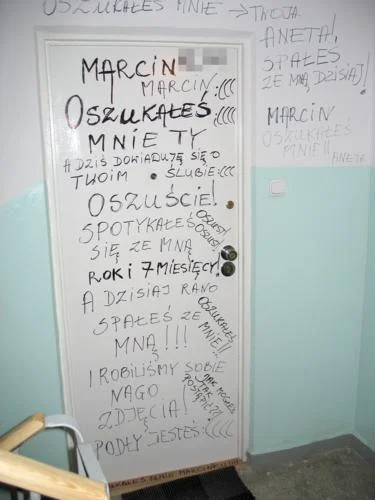 OSZUKAŁEŚ MNIE → TWOJA
ANETA!
SPAŁEŚ
ZE MNĄ DZISIAJ!
MARCIN
OSZUKAŁEŚ
MNIE!!
ANETA
MARCIN
MARCIN :(((
OSZUKAŁEŚ :(((
MNIE TY
A DZIŚ DOWIADUJĘ SIĘ O
TWOIM ŚLUBIE :(((
OSZUŚCIE!
SPOTYKAŁEŚ
SIĘ ZE MNĄ
OSZUST!
OSZUST!
ROK I 7 MIESIĘCY!
A DZISIAJ RANO
SPAŁEŚ ZE
MNĄ!!!
OSZUKAŁEŚ
MNIE!!!
I ROBILIŚMY SOBIE
NAGO
ZDJĘCIA!
JAK MOGŁEŚ
TAK
POSTĄPIĆ?!
PODŁY JESTEŚ :((((
MNIE MARCIN